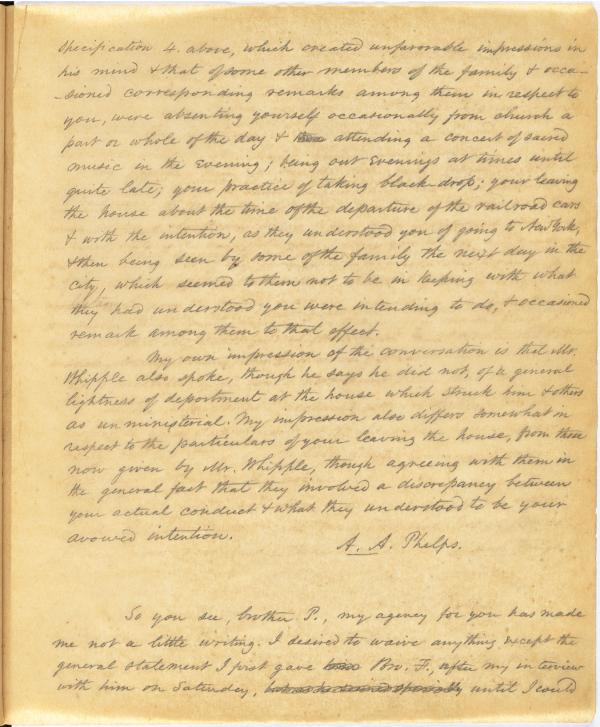 specification 4. above, which created unfavorable impressions in
his mind & that of some other members of the family & occa-
-sioned corresponding remarks among them in respect to
you, were absenting yourself occasionally from church a
part or whole of the day & attending a concert of sacred
music in the evening; being out evenings at times until
quite late; your practice of taking black-drop; your leaving
the house about the time of the departure of the railroad cars
& with the intention, as they understood you of going to New York,
& then being seen by some of the family the next day in the
city, which seemed to them not to be in keeping with what
they had understood you were intending to do, & occasioned
remark among them to that effect.
My own impression of the conversation is that Mr.
Whipple also spoke, though he says he did not, of a general
lightness of deportment at the house which struck him & others
as unministerial. My impression also differs somewhat in
respect to the particulars of your leaving the house, from those
now given by Mr. Whipple, though agreeing with them in
the general fact that they involved a discrepancy between
your actual conduct & what they understood to be your
avowed intention.
A. A. Phelps.
So you see, brother P., my agency for you has made
me not a little writing. I desired to waive anything except the
general statement I first gave Bro. F., after my interview
with him on Saturday, until I could